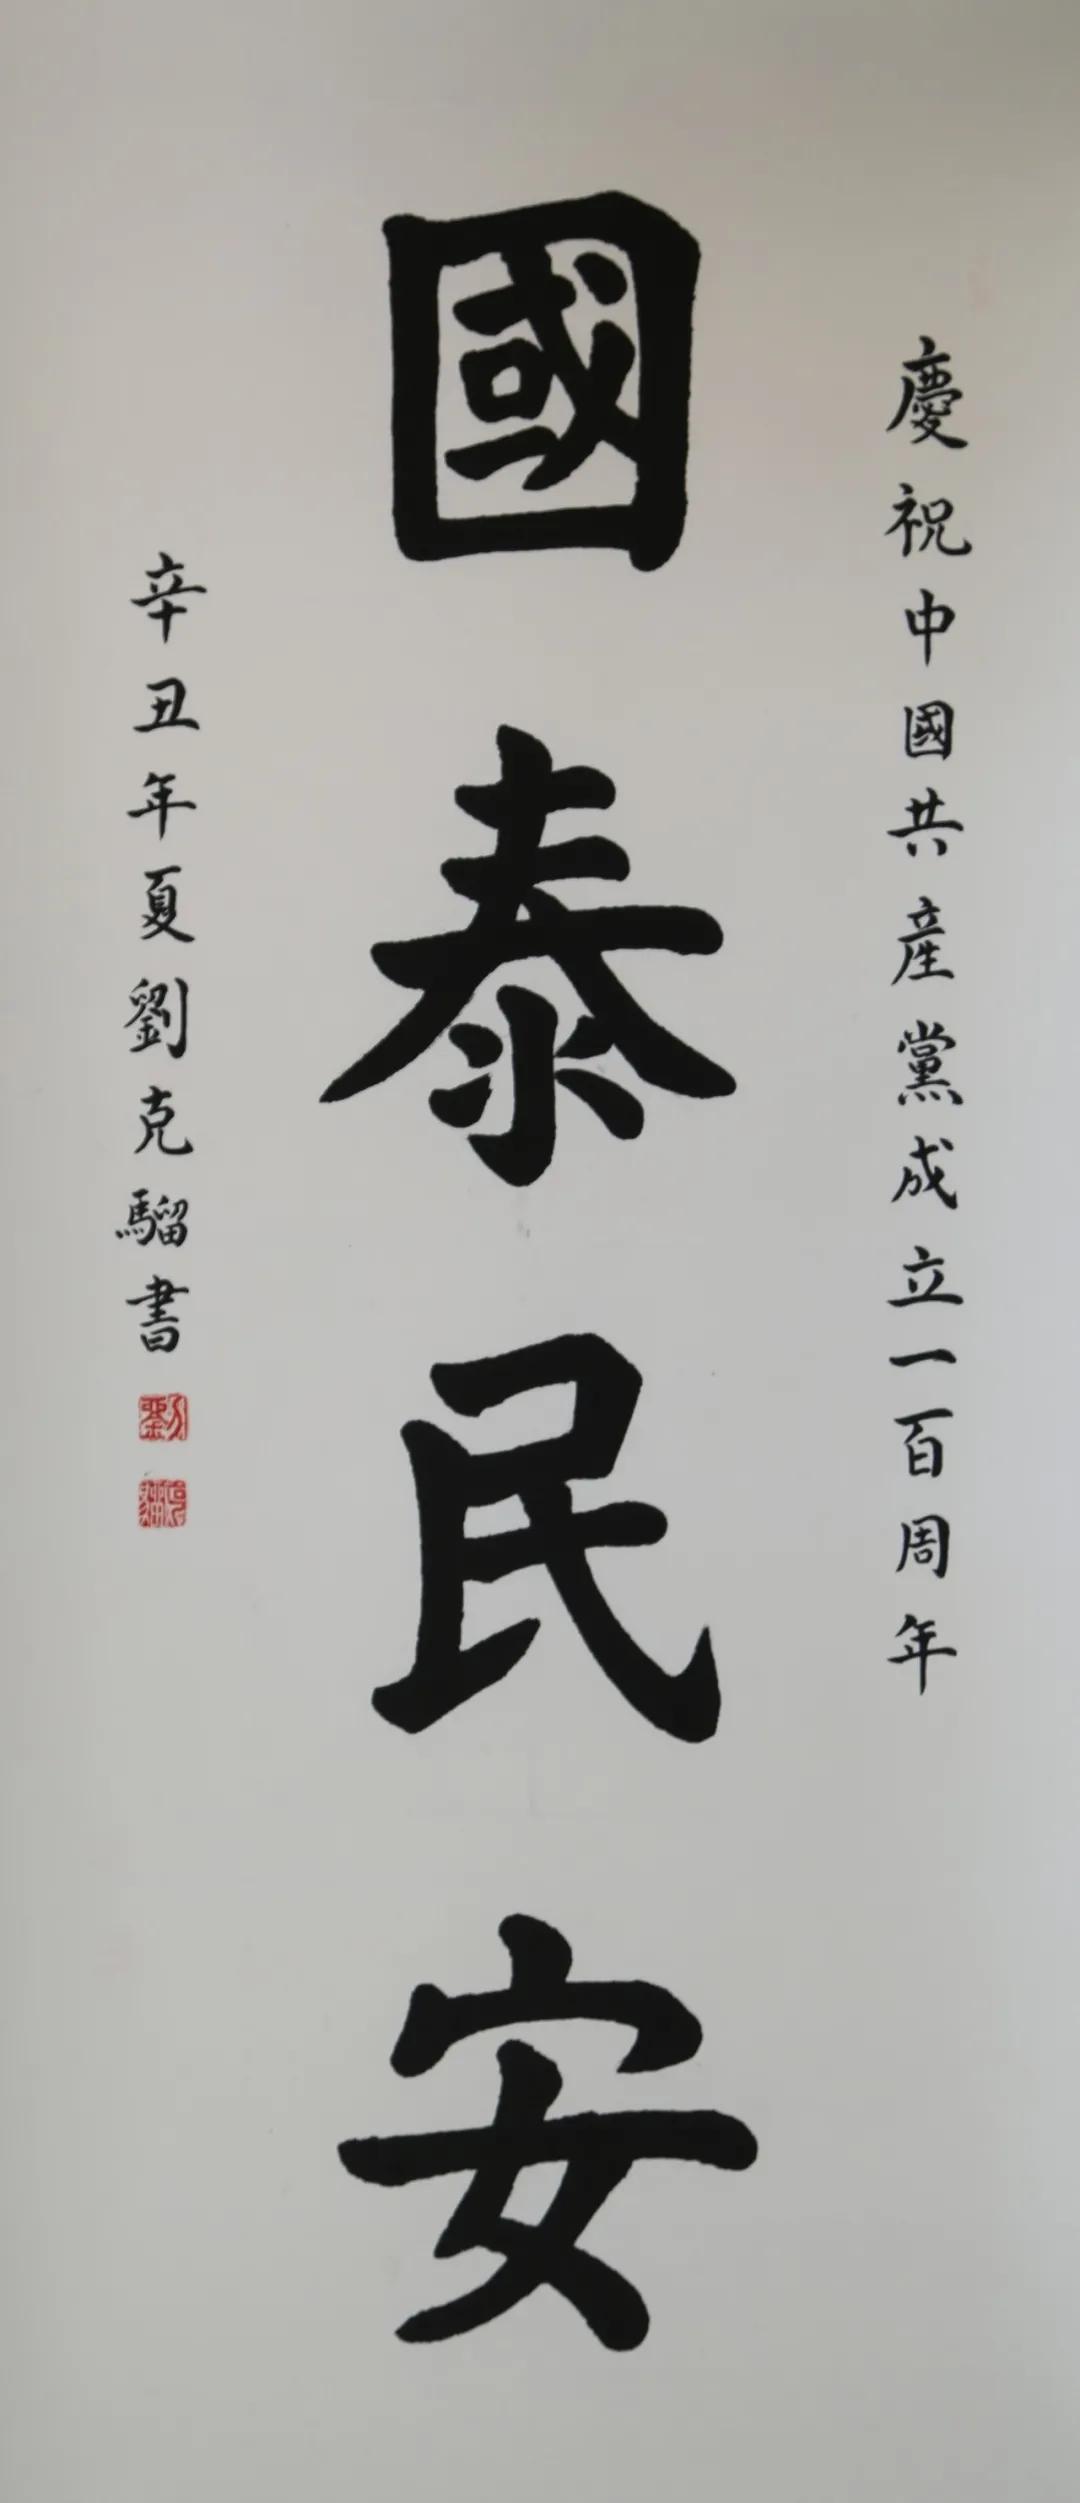 慶祝中國共産黨成立一百周年
國泰民安
辛丑年夏劉克騮書